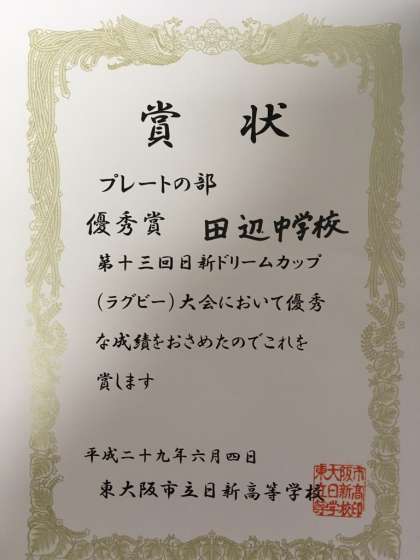 賞状
プレートの部
優秀賞 田辺中学校
第十三回日新ドリームカップ
(ラグビー)大会において優秀
な成績をおさめたのでこれを
賞します
平成二十九年六月四日
東大阪市立日新高等学校